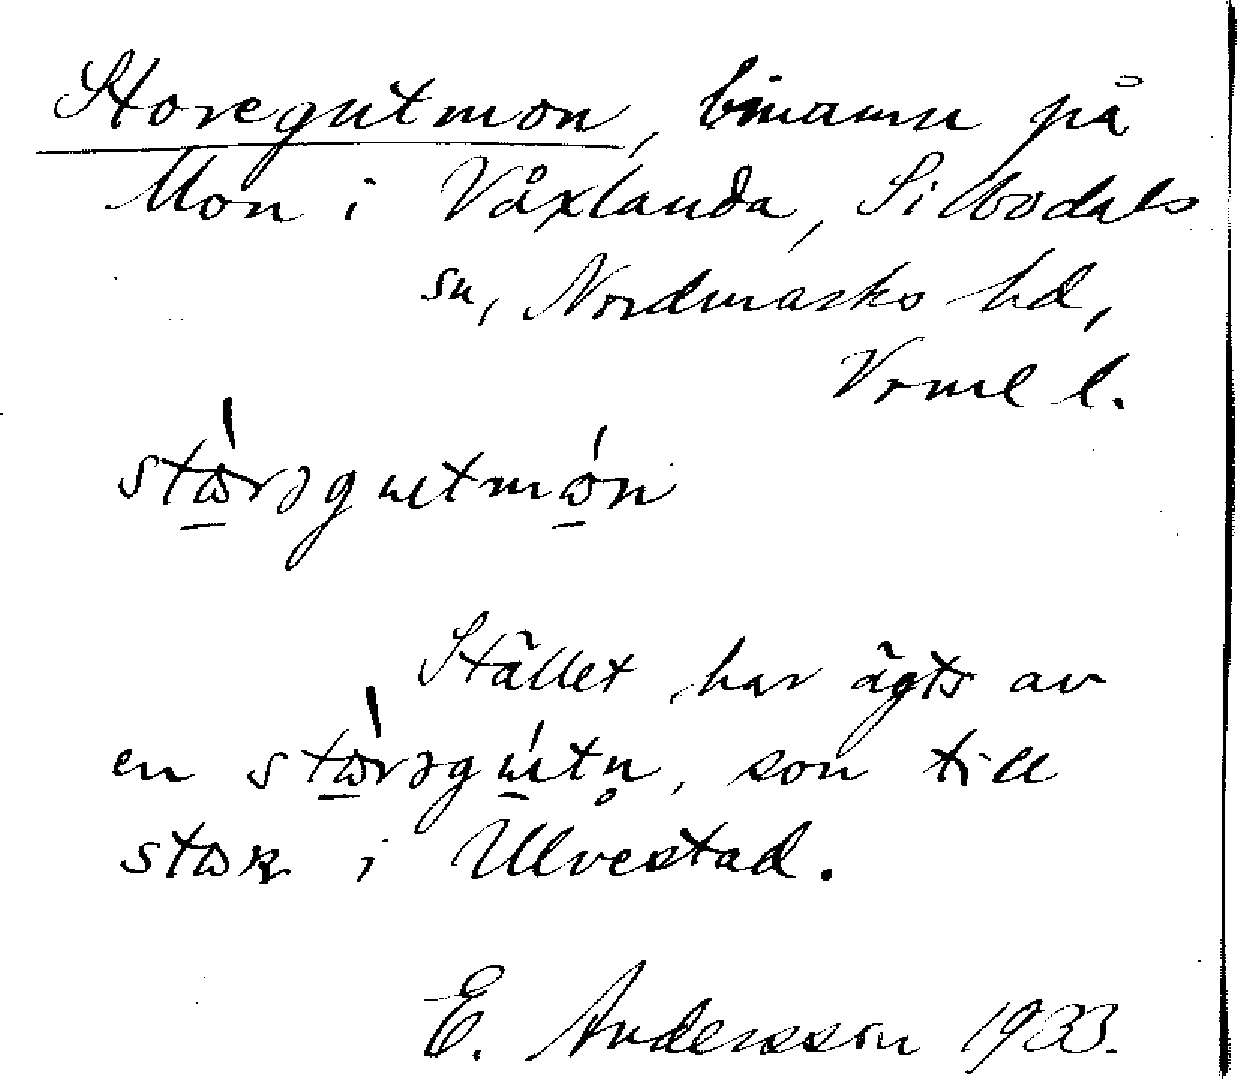 Storegutmon, binamn på
Mon i Våxlanda, Silbodals
sn, Nordmarks hd,
Vrml l.
stɷ̀rəgutmɷ́n
Stället har ägts av
en stɷ̀rəgútn̥, son till
stɷʀ i Ulvestad.
E. Andersson 1933.